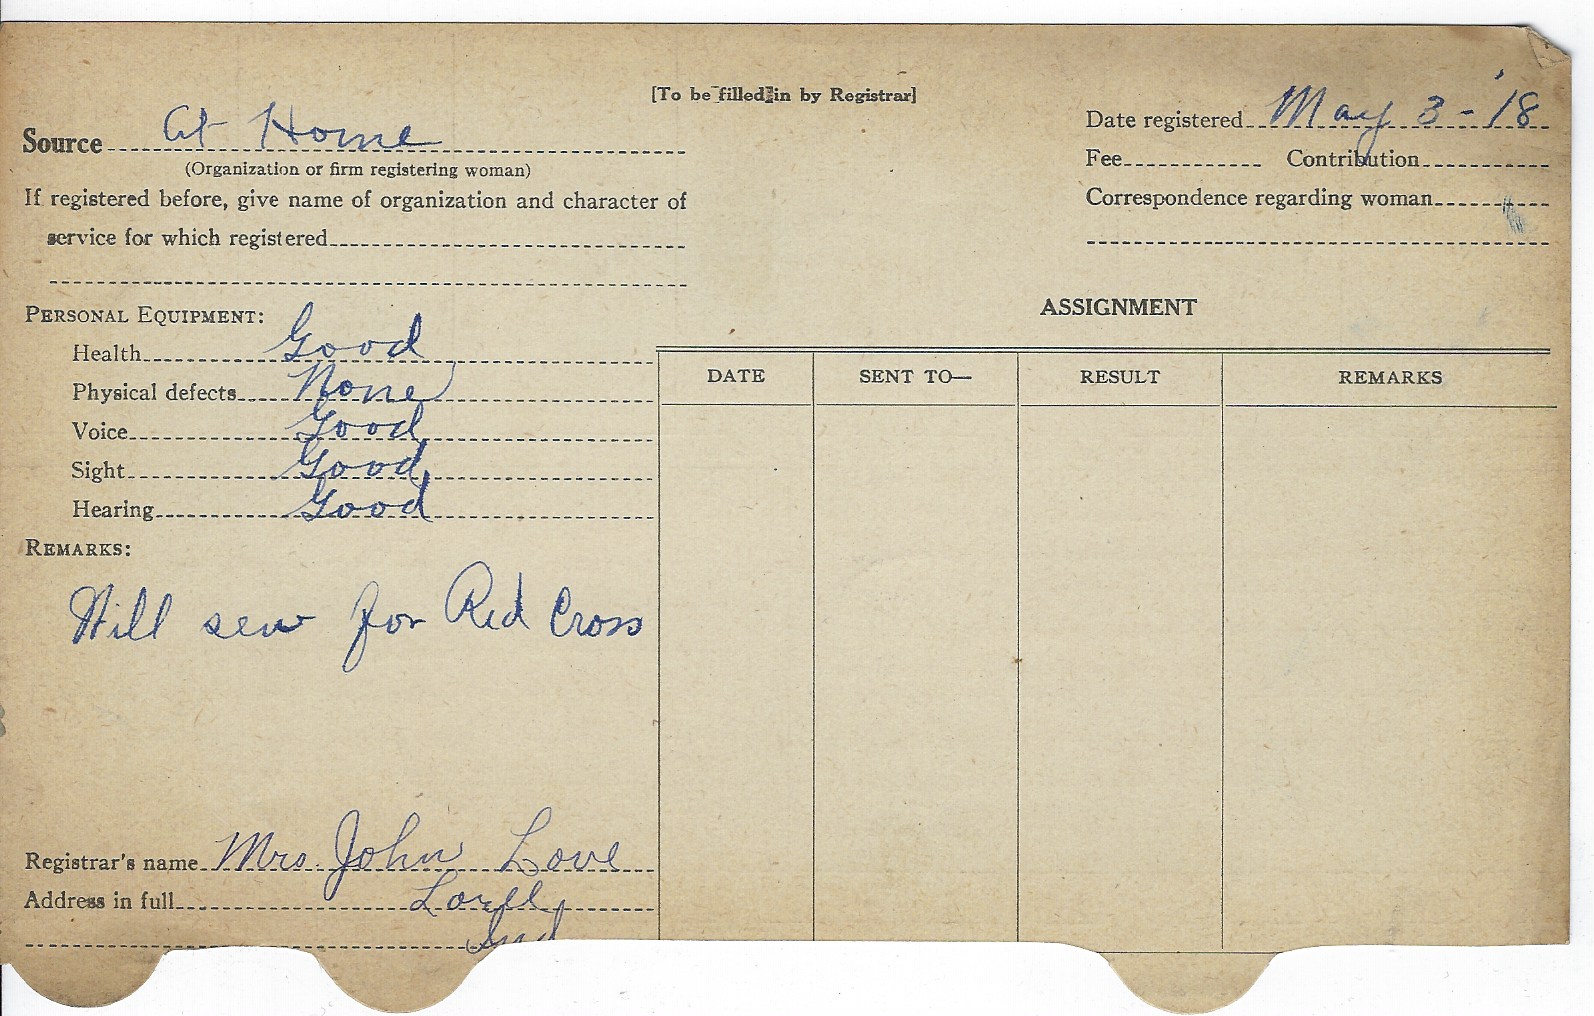 [To be filled in by Registrar]
Source At Home
(Organization or firm registering woman)
If registered before, give name of organization and character of
service for which registered
Date registered May 3 - '18
Fee Contribution
Correspondence regarding woman
PERSONAL EQUIPMENT:
Health Good
Physical defects None
Voice Good
Sight Good
Hearing Good
REMARKS:
Will sew for Red Cross
Registrar's name Mrs. John Love
Address in full
Ind
ASSIGNMENT
DATE SENT TO— RESULT REMARKS